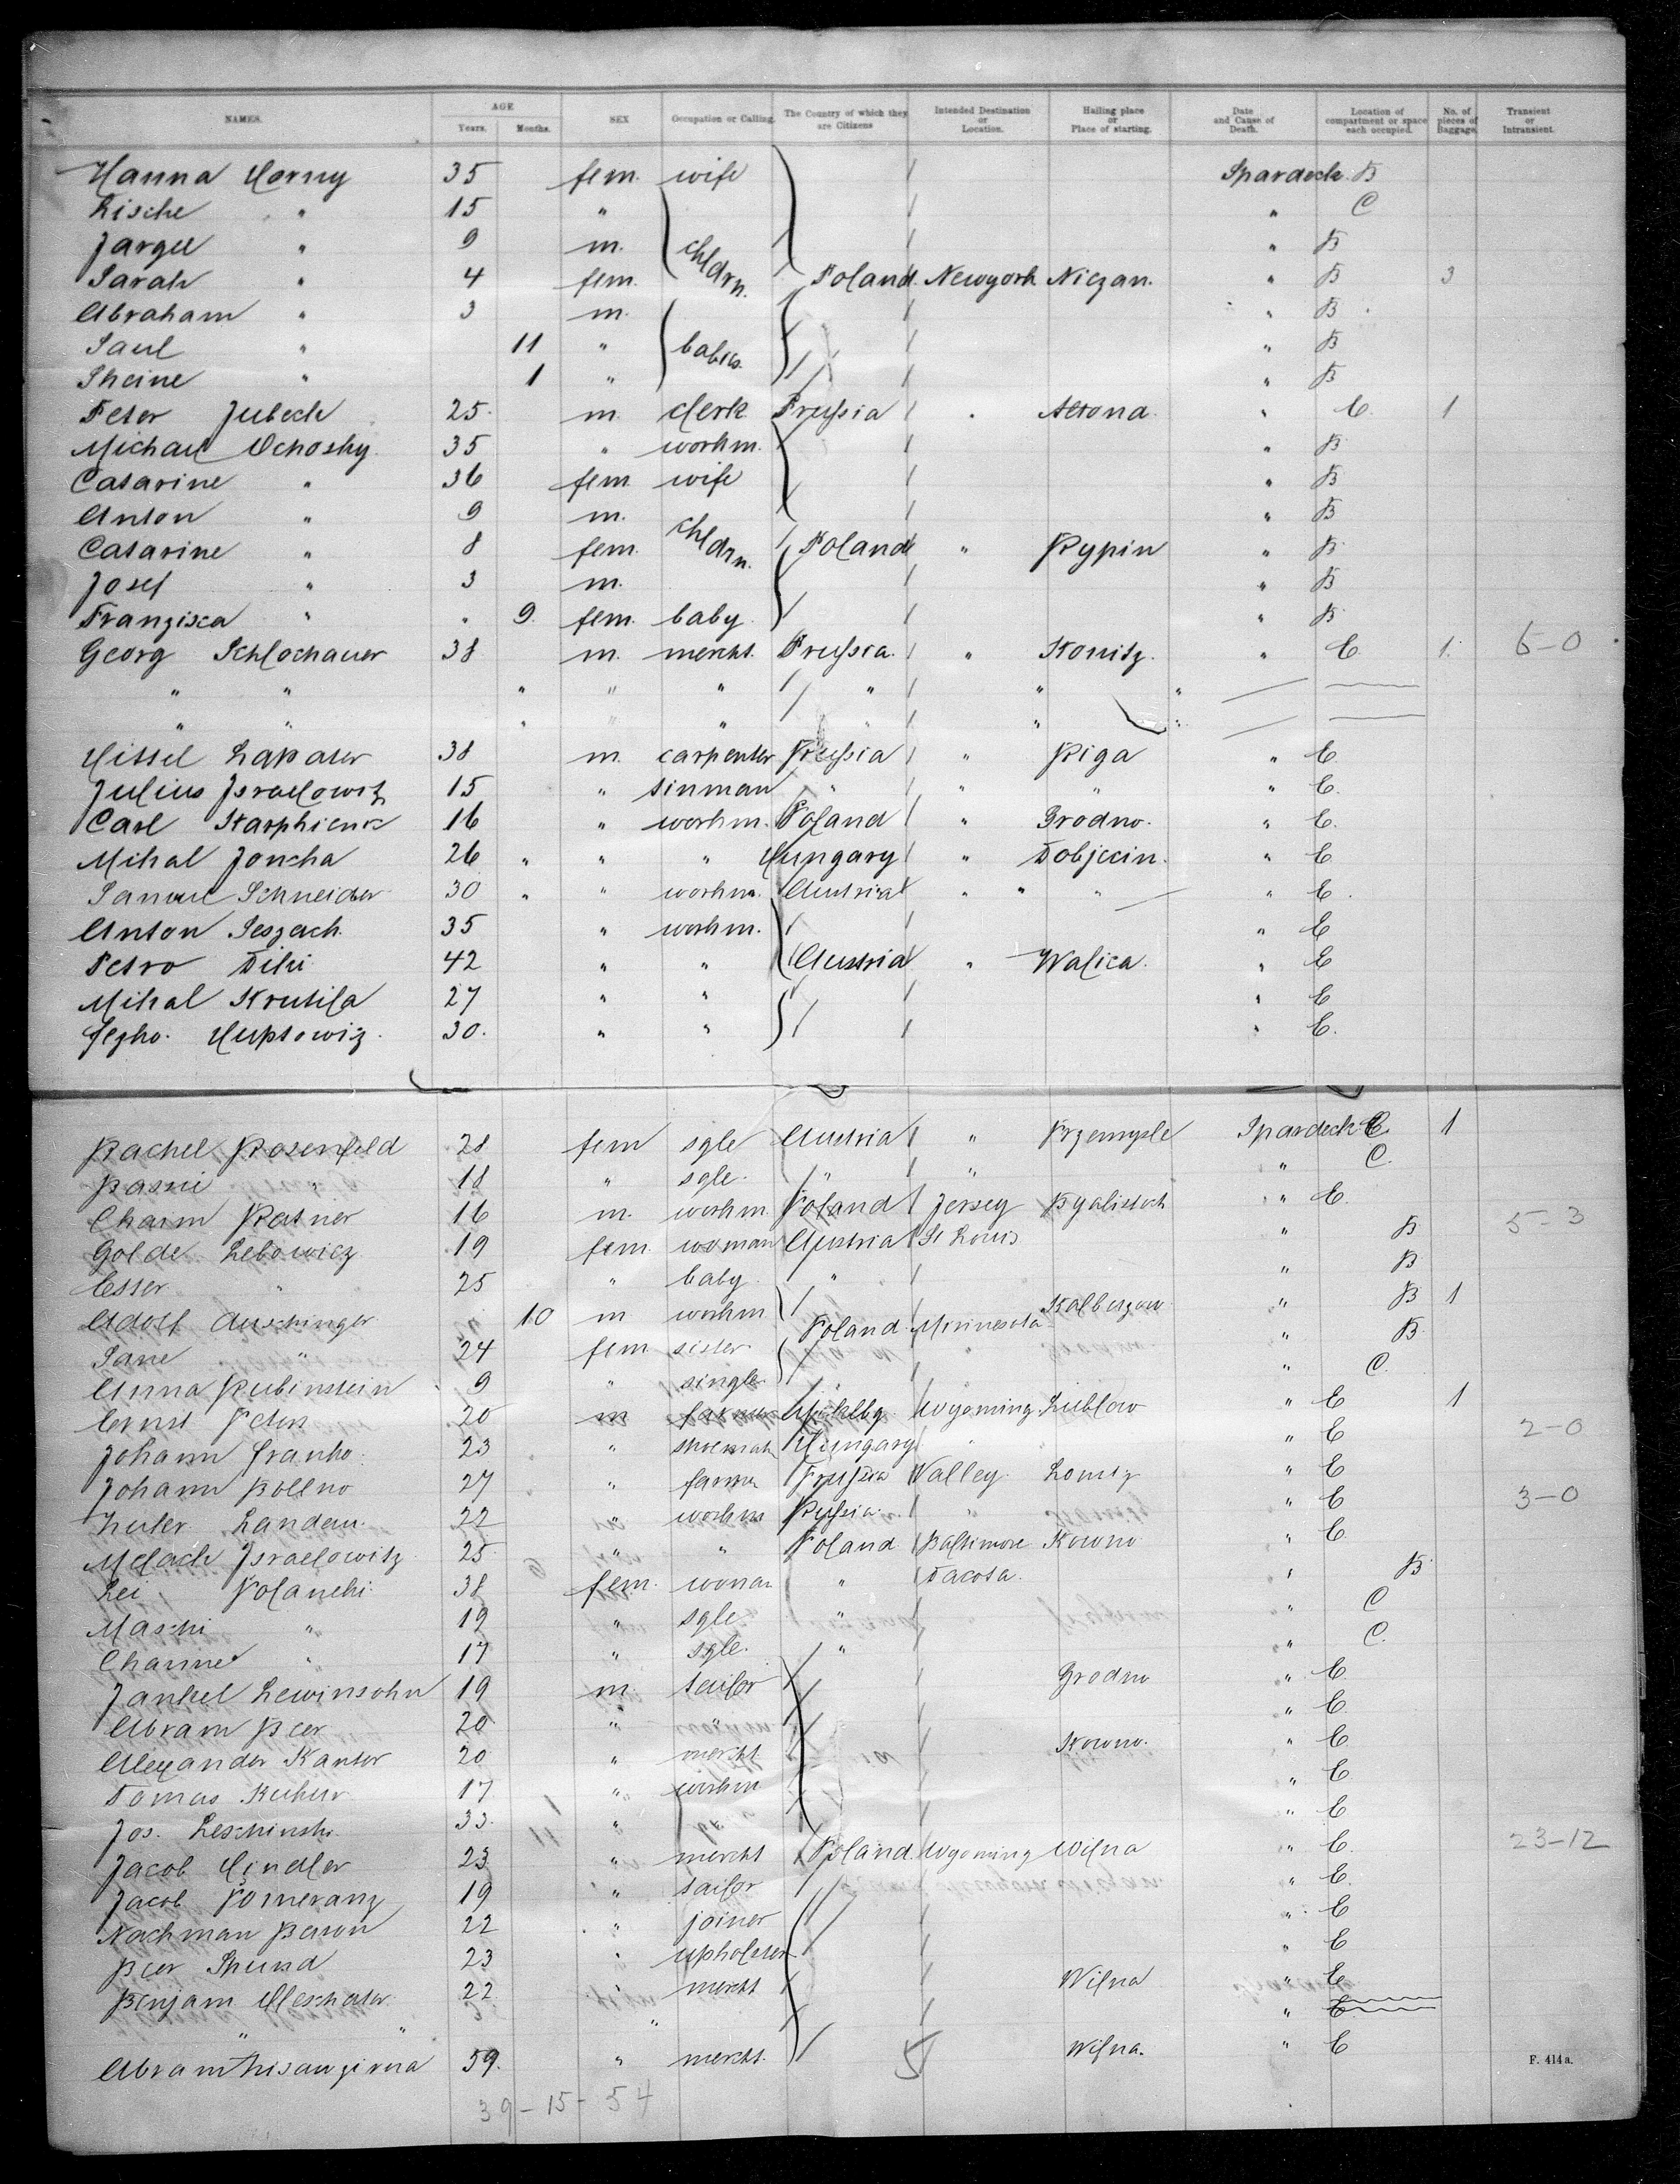 NAMES. AGE Years. Months. SEX Occupation or Calling. The Country of which they are Citizens Intended Destination or Location. Hailing place or Place of starting. Date and Cause of Death. Location of compartment or space each occupied. No. of pieces of Baggage. Transient or Intransient.
Hanna Horny 35 fem. wife Spardeck B
Lische " 15 " " C
Jargel " 9 m. chldrn. " B
Sarah " 4 fem. Poland Newyork Niezan. " B 3
Abraham " 3 m. " B
Saul " 11 " babies. " B
Sheine " 1 " " B
Peter Jubeck 25 m. clerk Prussia " Altona " E 1
Michael Ochosky 35 " workm. " B
Catarine " 36 fem. wife " B
Anton " 9 m. " B
Catarine " 8 fem. chldrn. Poland " Rypin " B
Josef " 3 m. " B
Franzisca " " 9. fem. baby " B
Georg Schlochauer 38 m. mercht. Prussia " Konitz. " E 1. 6-0
" " " " " " " "
" " " " " " "
Hissel Lapater 38 m. carpenter Russia " Riga " E
Julius Israelowitz 15 " tinman " " " " E.
Carl 16 " workm. Poland " Grodno. " E.
Mihal Joncha 26 " " " Hungary " Dobjecin. " E
Samuel Schneider 30 " " workm. Austria " " " " E.
Anton 35 " workm. " E
Petro Diki 42 " " Austria " Walica. " E
Mihal Krutila 27 " " " E
Huptowiz. 30. " " " E.
Rachel Rosenfeld 28 fem sgle Austria " Przemysle Spardeck C 1
Bassi " 18 " sgle. " " " C.
Chaim Ratner 16 m. workm. Poland Jersey Byalistock " E.
Golde Lebowicz 19 fem. woman Austria St Louis " B 5-3
Esser " 25 " baby " " B
Adolf Auschinger 10 m workm Kalbuzow " B 1
Sane " 24 fem sister Poland Minnesota " B
Anna Rubinstein 9 " single " C.
Ernst Peters 20 m farmer Wyoming Lublow " E 1
Johann Franko 23 " Hungary " " E 2-0
Johann Bollno 27 " farmer Prussia Valley " E
Landau 22 " workm Russia " " E 3-0
Melach Israelowitz 25 " " Poland Baltimore Kowno " E.
Lei Polanski 38 fem. woman " Dacota. " B
Maschi " 19 " sgle " " C
Channe " 17 " sgle. " " C.
Jankel Lewinsohn 19 m. tailor Grodno " E
Abram Beer 20 " " " E.
Alexander Kantor 20 " mercht. Kowno. " E
Tomas 17 " workm " E
Jos. Leschinski 33. " " E
Jacob Hindler 23 " mercht Poland Wyoming Wilna " E. 23-12
Jacob Pomeranz 19 " tailor " E.
Nachman Baron 22 " joiner " E
Beer Spund 23 " upholster " E
Benjam 22 " mercht Wilna " E
" " " " E
Abram 59. " mercht. 5 Wilna. " E
F. 414 a.
39-15-54